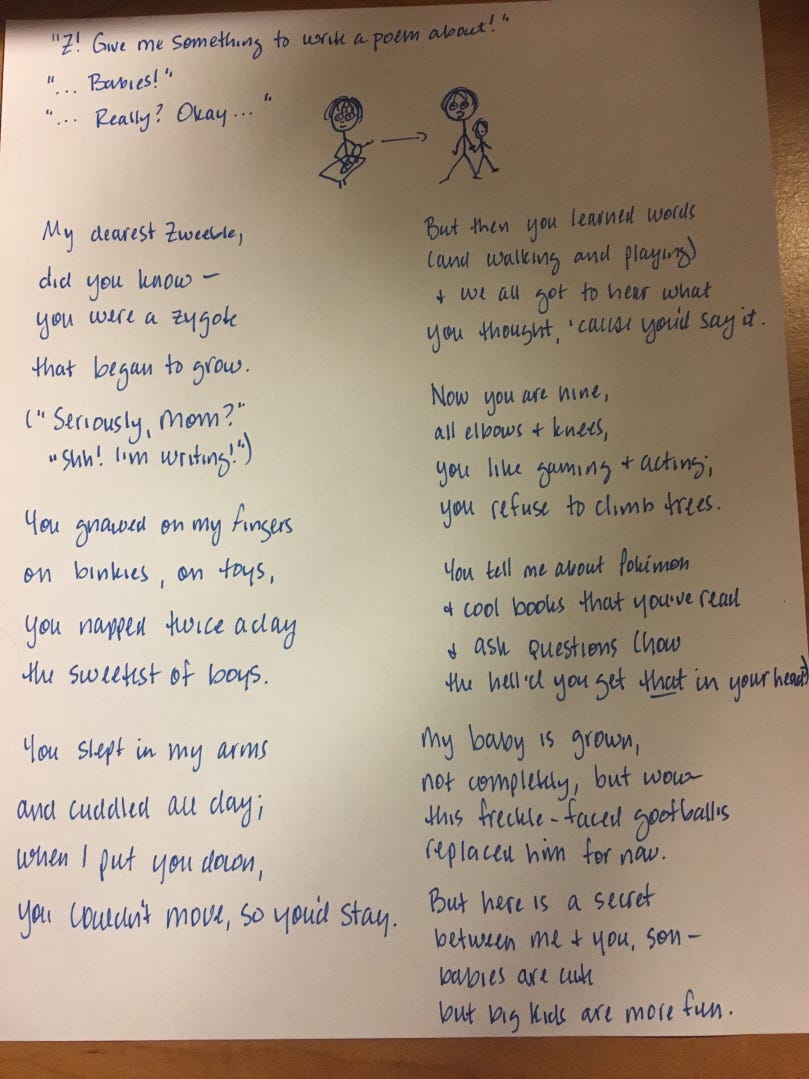 "Z! Give me something to write a poem about!"
"... Babies!"
"... Really? Okay... "
My dearest Zweeble,
did you know –
you were a zygote
that began to grow.
("Seriously, Mom?"
"Shh! I'm writing!")
You gnawed on my fingers
on binkies, on toys,
you napped twice a day
the sweetest of boys.
You slept in my arms
and cuddled all day;
when I put you down,
you couldn't move, so you'd stay.
But then you learned words
(and walking and playing)
+ we all got to hear what
you thought, 'cause you'd say it.
Now you are nine,
all elbows + knees,
you like gaming + acting;
you refuse to climb trees.
You tell me about Pokémon
+ cool books that you've read
+ ask questions (how
the hell'd you get that in your head)
My baby is grown,
not completely, but wow–
this freckle-faced goofball's
replaced him for now.
But here is a secret
between me + you, son –
babies are cute
but big kids are more fun.